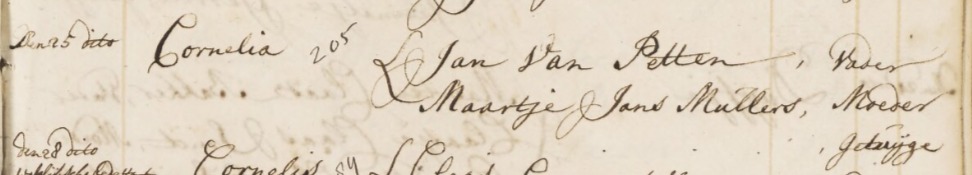 Den 25 dito Cornelia 205 Jan Van Petten, Vader
Maartje Jans Mullers, Moeder
, getuijge
den 28 dito
Cornelis 84